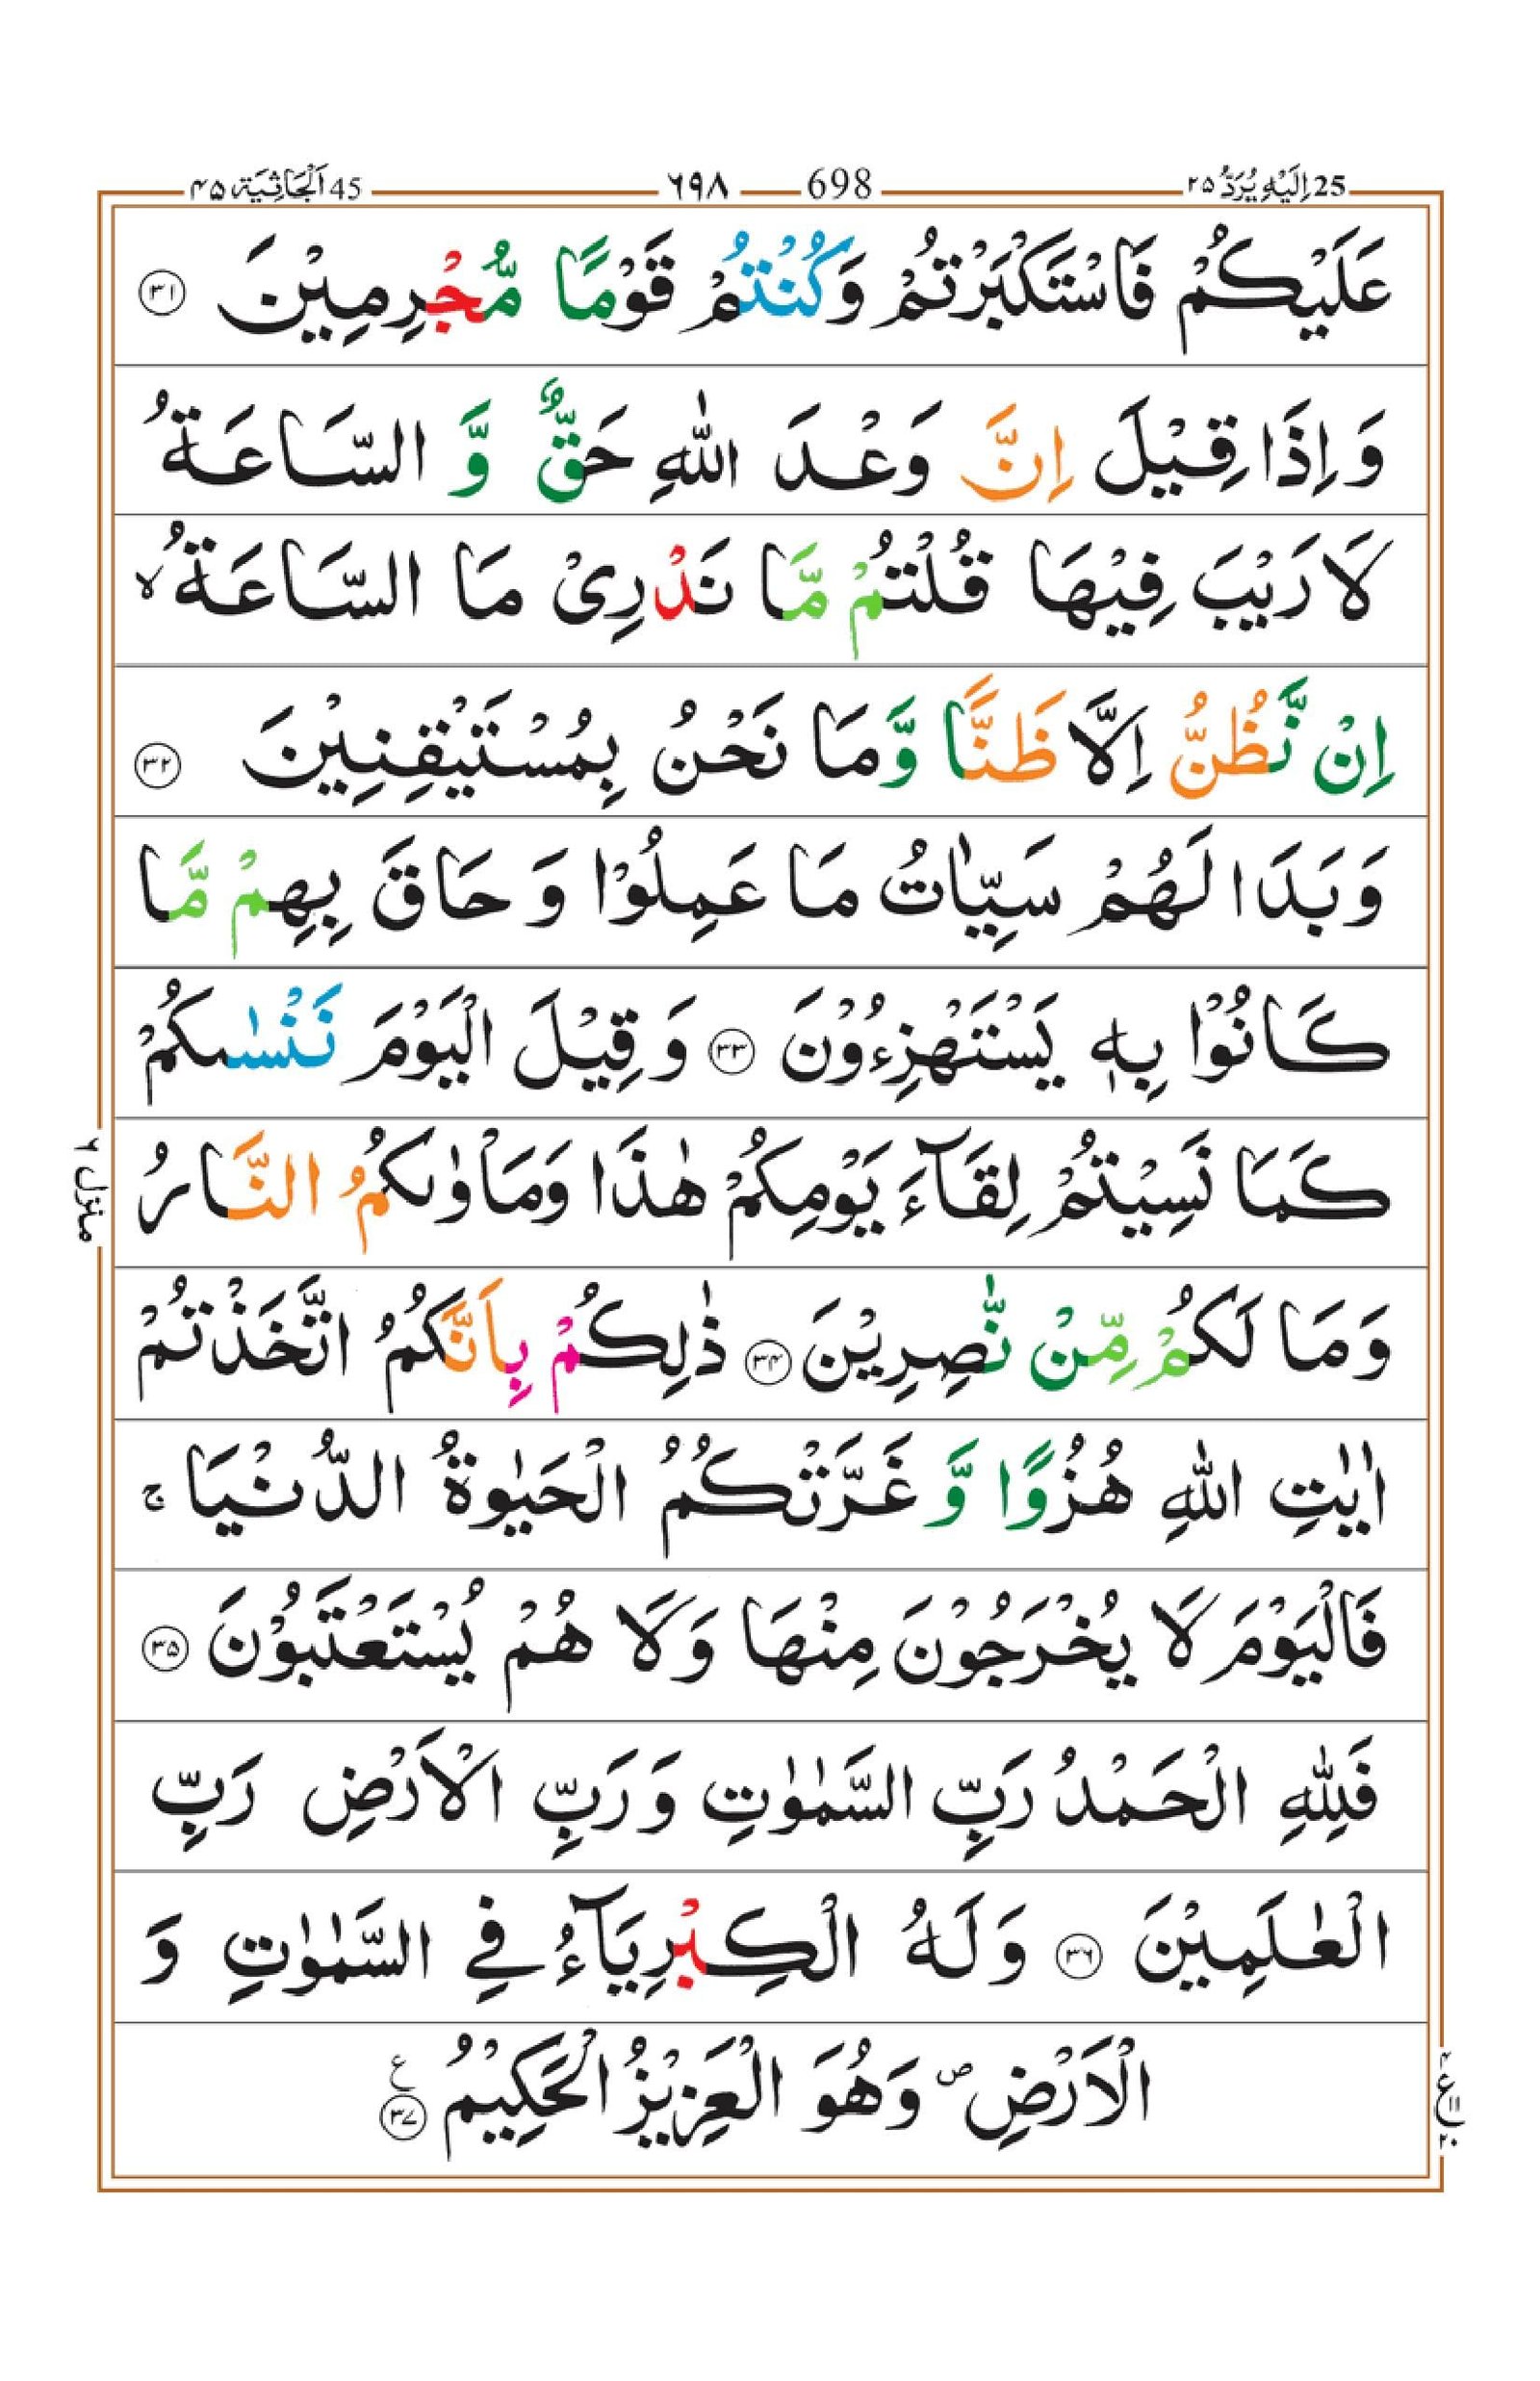 45 اَلْجَاثِيَة ۴۵ ۶۹۸ 698 اِلَيْهِ يُرَدُّ ۲۵ 25
عَلَيْكُمْ فَاسْتَكْبَرْتُمْ وَكُنْتُمْ قَوْمًا مُّجْرِمِيْنَ ۳۱
وَ اِذَا قِيْلَ اِنَّ وَعْدَ اللّٰهِ حَقٌّ وَّ السَّاعَةُ
لَا رَيْبَ فِيْهَا قُلْتُمْ مَّا نَدْرِىْ مَا السَّاعَةُ ۙ
اِنْ نَّظُنُّ اِلَّا ظَنًّا وَّمَا نَحْنُ بِمُسْتَيْقِنِيْنَ ۳۲
وَ بَدَا لَهُمْ سَيِّاٰتُ مَا عَمِلُوْا وَ حَاقَ بِهِمْ مَّا
كَانُوْا بِهٖ يَسْتَهْزِءُوْنَ ۳۳ وَ قِيْلَ الْيَوْمَ نَنْسٰىكُمْ
كَمَا نَسِيْتُمْ لِقَآءَ يَوْمِكُمْ هٰذَا وَمَاْوٰىكُمُ النَّارُ
وَمَا لَكُمْ مِّنْ نّٰصِرِيْنَ ۳۴ ذٰلِكُمْ بِاَنَّكُمُ اتَّخَذْتُمْ
اٰيٰتِ اللّٰهِ هُزُوًا وَّ غَرَّتْكُمُ الْحَيٰوةُ الدُّنْيَا ۚ
فَالْيَوْمَ لَا يُخْرَجُوْنَ مِنْهَا وَلَا هُمْ يُسْتَعْتَبُوْنَ ۳۵
فَلِلّٰهِ الْحَمْدُ رَبِّ السَّمٰوٰتِ وَ رَبِّ الْاَرْضِ رَبِّ
الْعٰلَمِيْنَ ۳۶ وَ لَهُ الْكِبْرِيَآءُ فِي السَّمٰوٰتِ وَ
الْاَرْضِ ۖ وَهُوَ الْعَزِيْزُ الْحَكِيْمُ ۳۷ ع
منزل ۶
۴ ع ۱۱ ۲۰